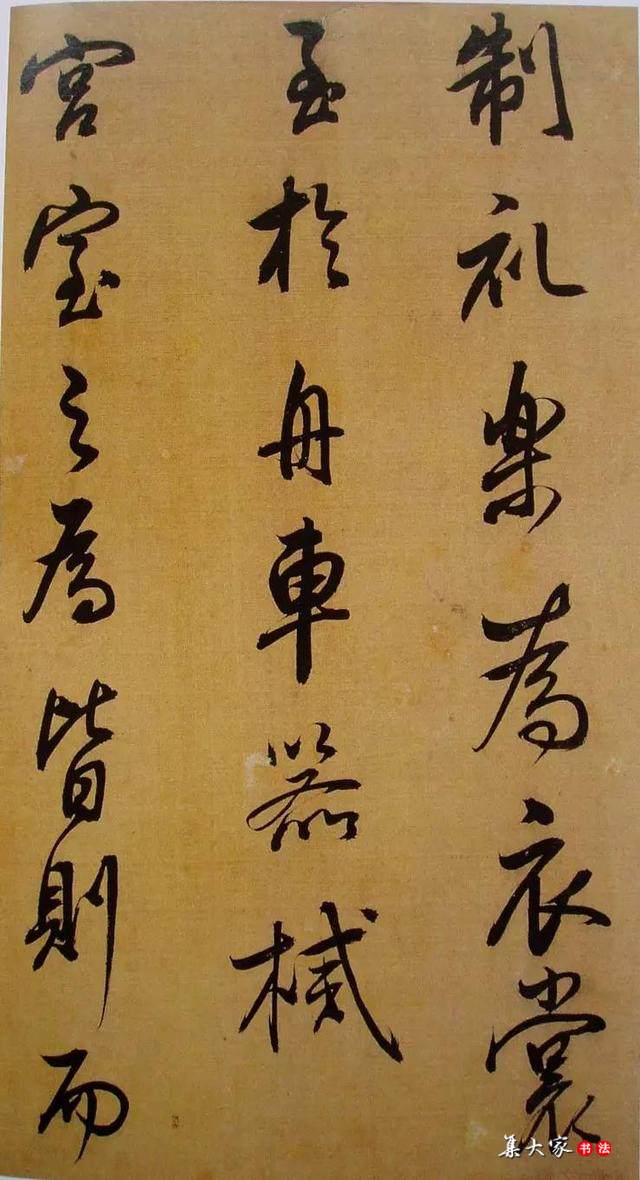 制礼楽為衣裳
至於舟車器械
宮室之為皆則而
集大家书法